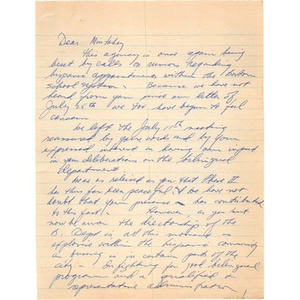 Dear Mr. Fahey
This agency is once again being
beset by calls & rumors regarding
hispanic appointments within the Boston
school system. Because we have not
heard from you since our letter of
July 25th we too have begun to feel
concern.
We left the July 11th meeting
reassured by your words and by your
expressed interest in having our input
in your deliberations on the bilingual
department.
We are relieved as you that Phase II
so thus far been peaceful & we have not
doubt that your presence has contributed
to this fact. However, as you must
now be aware the Directorship of the
B. Dept is at this moment as
explosive within the hispanic community
as busing is in certain parts of the
city. Our fight for good bilingual
programs and a qualified &
representative administrator